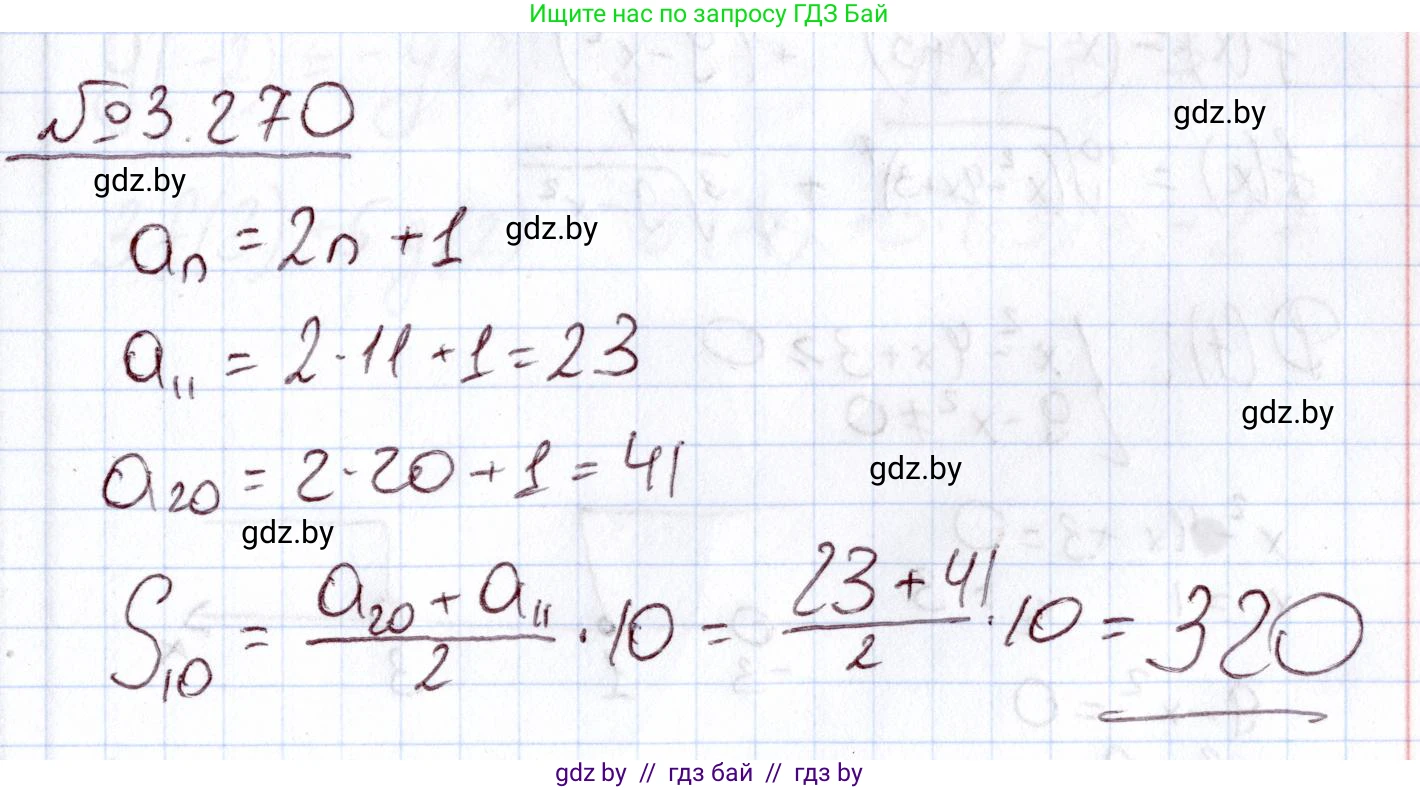 Ищите нас по запросу ГДЗ Бай
№3.270
gdz.by
gdz.by
aₙ = 2n + 1
gdz.by
a₁₁ = 2·11 + 1 = 23
gdz.by
a₂₀ = 2·20 + 1 = 41
gdz.by
gdz.by
S₁₀ = (a₂₀ + a₁₁)/2 · 10 = (23 + 41)/2 · 10 = 320
gdz by // гдз бай // гдз by